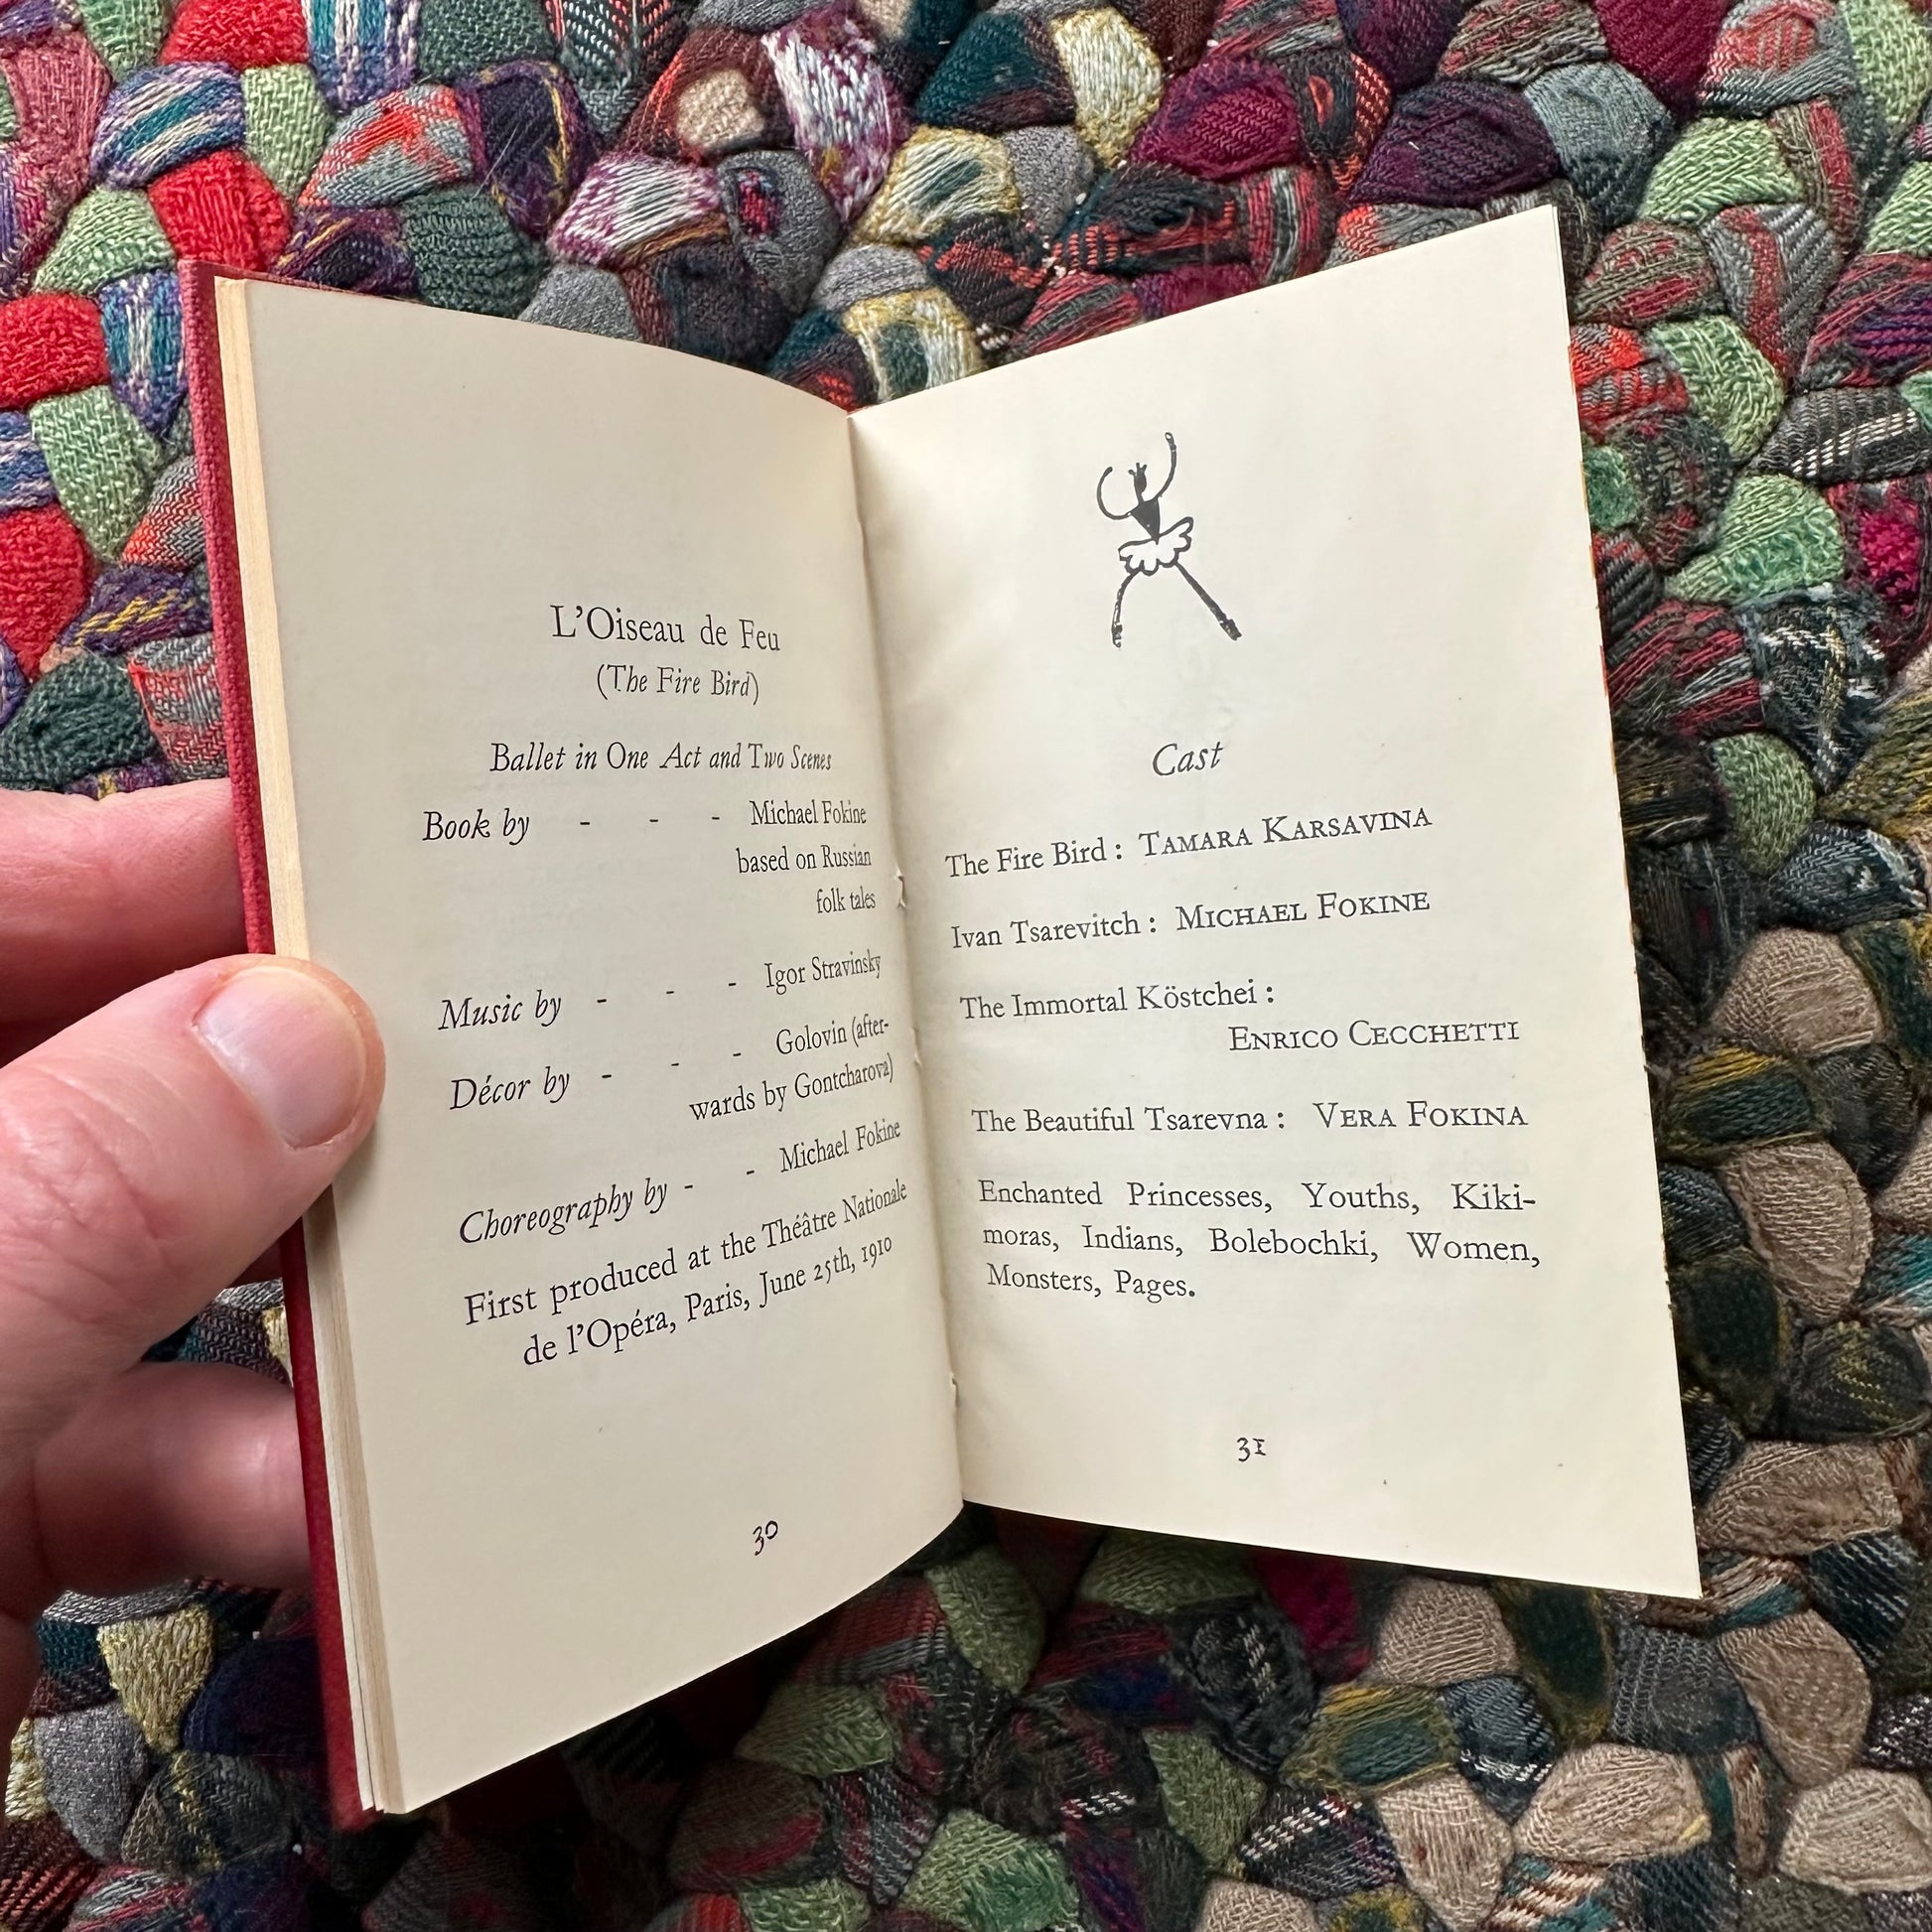 L'Oiseau de Feu
(The Fire Bird)
Ballet in One Act and Two Scenes
Book by - - - Michael Fokine
based on Russian
folk tales
Music by - - - Igor Stravinsky
Décor by - - - Golovin (after-
wards by Gontcharova)
Choreography by - - Michael Fokine
First produced at the Théâtre Nationale
de l'Opéra, Paris, June 25th, 1910
30
Cast
The Fire Bird : TAMARA KARSAVINA
Ivan Tsarevitch : MICHAEL FOKINE
The Immortal Köstchei :
ENRICO CECCHETTI
The Beautiful Tsarevna : VERA FOKINA
Enchanted Princesses, Youths, Kiki-
moras, Indians, Bolebochki, Women,
Monsters, Pages.
31